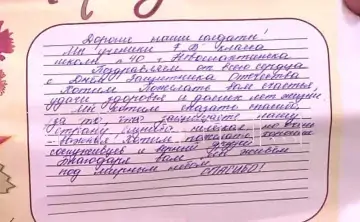 Дорогие наши солдаты!
Мы ученики 7 В класса
школы №40 г. Новошахтинска
Поздравляем от всего сердца
с Днём Защитника Отечества
Хотим Пожелать вам счастья,
удачи здоровья и долгих лет жизни
И мы хотим сказать спасибо
за то, что защищаете нашу
страну
хотим пожелать хороших
сослуживцев и
благодаря вам, мы живём
под мирным небом
СПАСИБО!